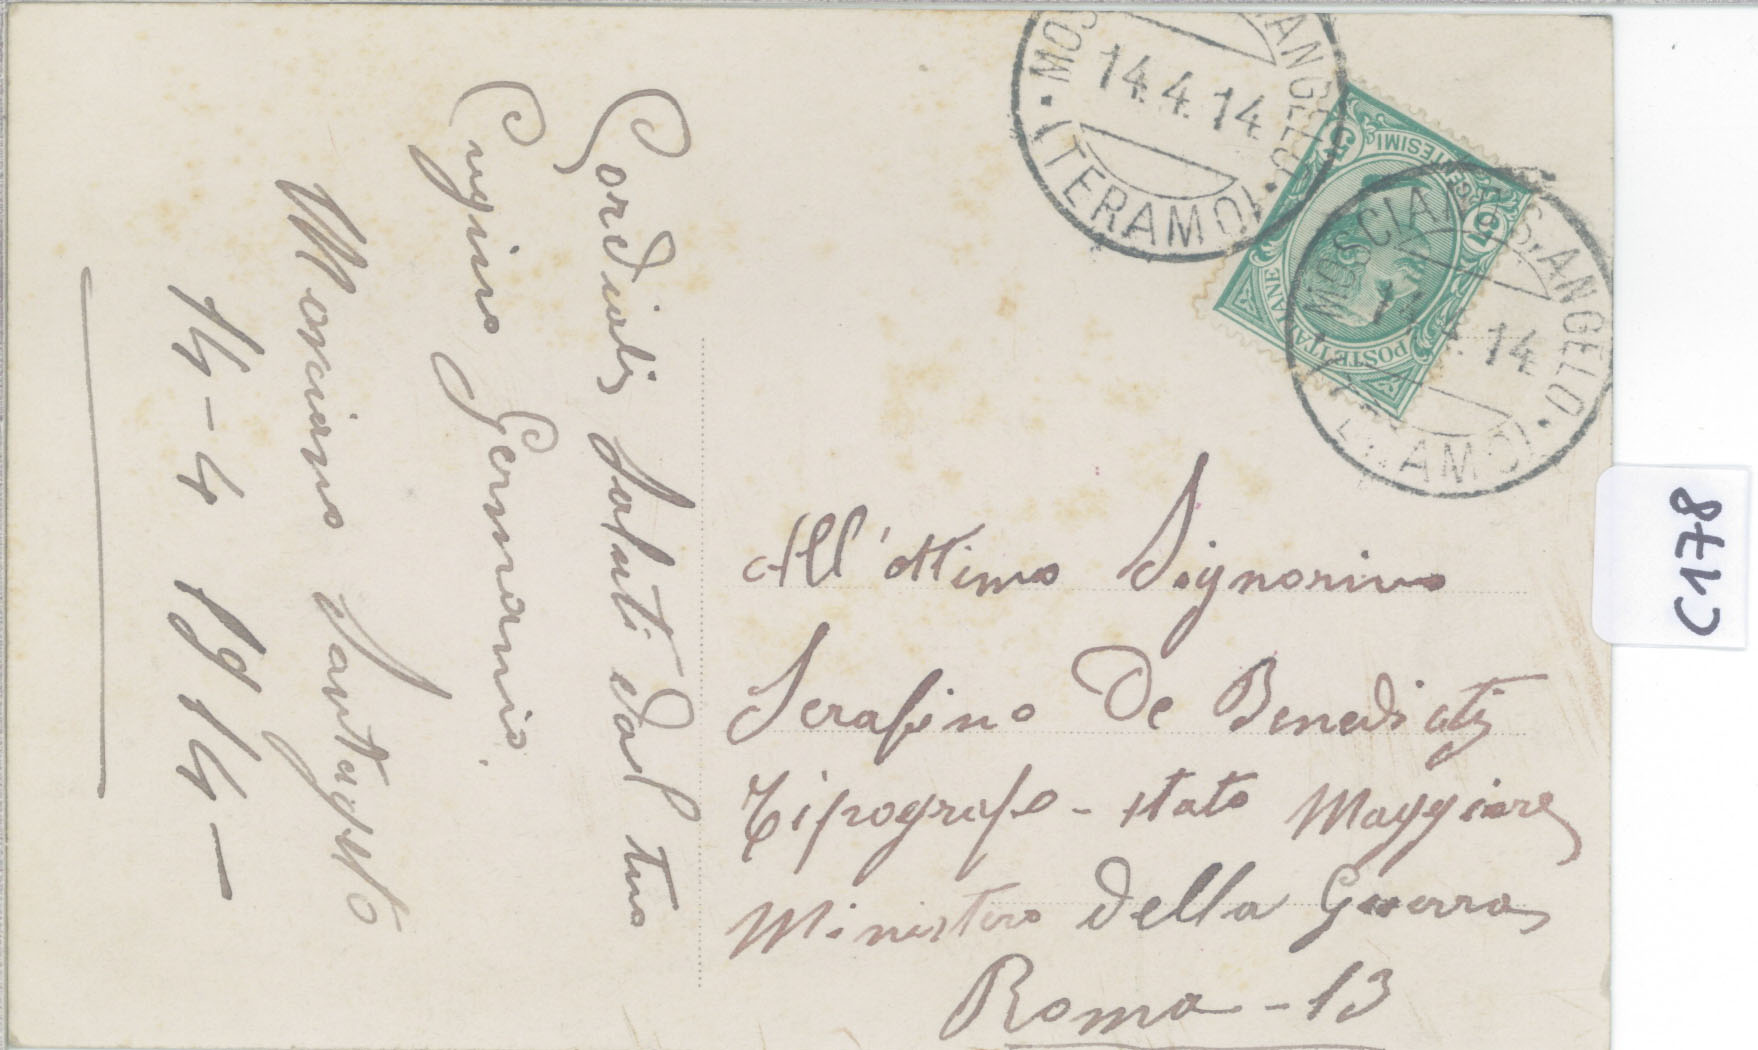 Cordiali saluti dal tuo
Cugino Germanio.
Mosciano Santagelo
14-4 1914-
MOSCIANO S. ANGELO
14.4.14
(TERAMO)
POSTE ITALIANE
CENTESIMI
5
5
MOSCIANO S. ANGELO
14.4.14
(TERAMO)
All'ottimo Signorino
Serafino De Benedictis
Tipografo - Stato Maggiore
Ministero della Guerra
Roma - 13
C178